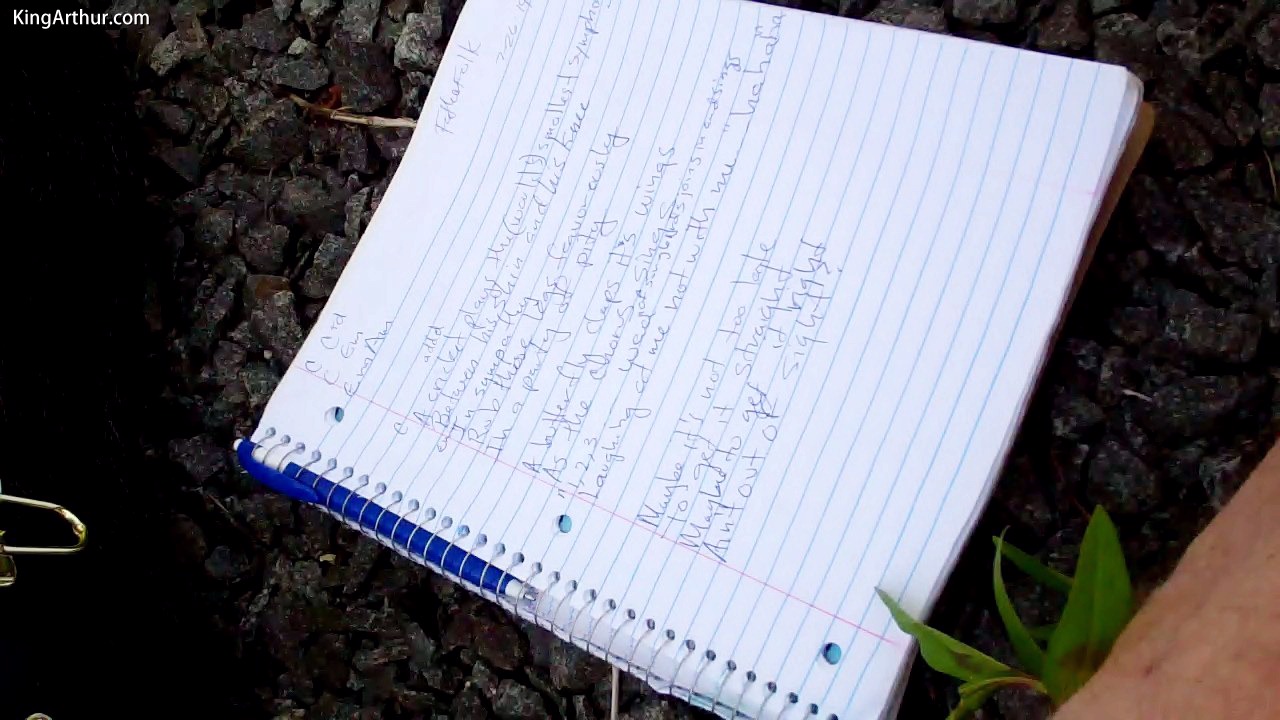 KingArthur.com
FatherFolk
C Cid
E Em
A cricket plays the (world's) smallest symphony
Balances his shin and his knee
In sympathy
Rub those legs feverously
I'm a party of pity
A butterfly claps it's wings
As the chorus sings
"1, 2, 3
joins in and sings
Laughing at me not with me "hahaha"
Maybe it's not too late
to get it straight
Maybe to get it right
Aint out of sight!